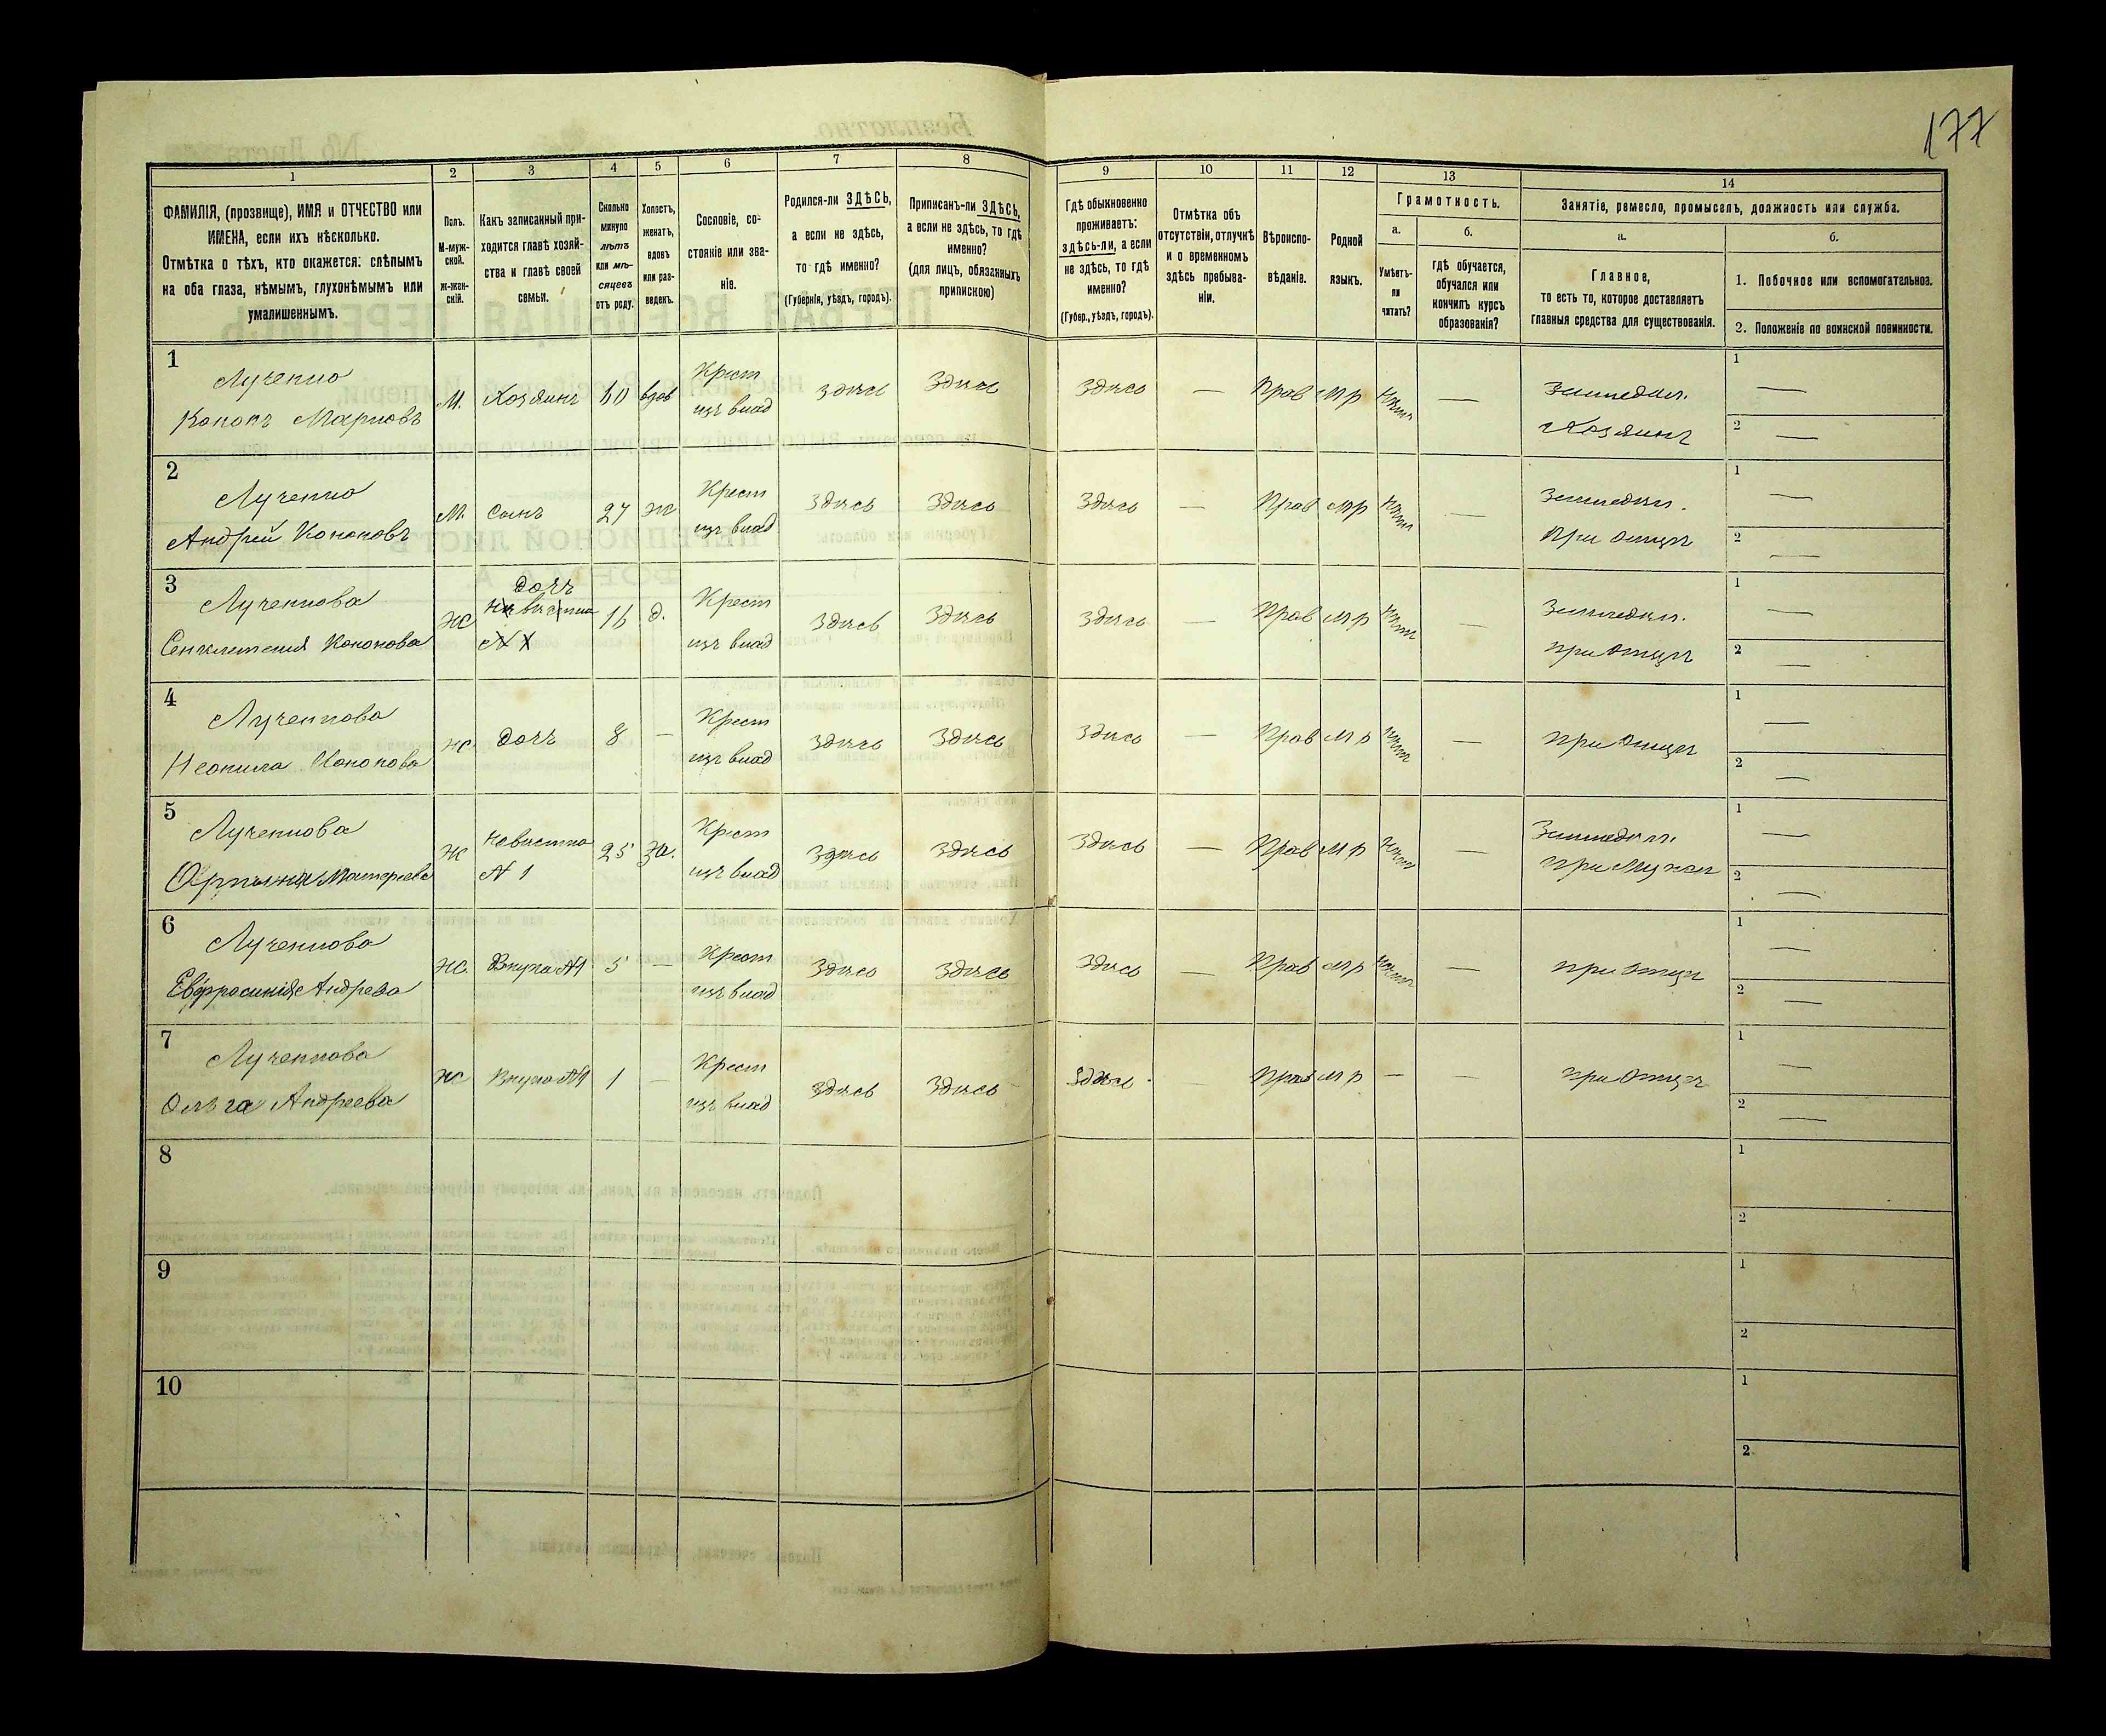 177
1
2
3
4
5
6
7
8
9
10
11
12
13
14
ФАМИЛІЯ, (прозвище), ИМЯ и ОТЧЕСТВО или
ИМЕНА, если ихъ нѣсколько.
Отмѣтка о тѣхъ, кто окажется: слѣпымъ
на оба глаза, нѣмымъ, глухонѣмымъ или
умалишеннымъ.
Полъ.
М-муж-
ской.
ж-жен-
скій.
Какъ записанный при-
ходится главѣ хозяй-
ства и главѣ своей
семьи.
Сколько
минуло
лѣтъ
или мѣ-
сяцевъ
отъ роду.
Холостъ,
женатъ,
вдовъ
или раз-
веденъ.
Сословіе, со-
стояніе или зва-
ніе.
Родился-ли ЗДѢСЬ,
а если не здѣсь,
то гдѣ именно?
(Губернія, уѣздъ, городъ).
Приписанъ-ли ЗДѢСЬ,
а если не здѣсь, то гдѣ
именно?
(для лицъ, обязанныхъ
припискою)
Гдѣ обыкновенно
проживаетъ:
здѣсь-ли, а если
не здѣсь, то гдѣ
именно?
(Губер., уѣздъ, городъ).
Отмѣтка объ
отсутствіи, отлучкѣ
и о временномъ
здѣсь пребыва-
ніи.
Вѣроиспо-
вѣданіе.
Родной
языкъ.
Грамотность.
а.
Умѣетъ-
ли
читать?
б.
гдѣ обучается,
обучался или
кончилъ курсъ
образованія?
Занятіе, ремесло, промыселъ, должность или служба.
а.
Главное,
то есть то, которое доставляетъ
главныя средства для существованія.
б.
1. Побочное или вспомогательное.
2. Положеніе по воинской повинности.
1
Лученко
Кононъ Марковъ
М.
Хозяинъ
60
вдов
Крест
изъ влад
здѣсь
здѣсь
здѣсь
—
Прав
мр
нѣтъ
—
Земледѣл.
Хозяинъ
1 —
2 —
2
Лученко
Андрей Кононовъ
М.
Сынъ
27
ж
Крест
изъ влад
здѣсь
здѣсь
здѣсь
—
Прав
мр
нѣтъ
—
Земледѣл.
При отцѣ
1 —
2 —
3
Лученкова
Сенклетенія Кононова
ж
дочь
невѣстка
16
д.
Крест
изъ влад
здѣсь
здѣсь
здѣсь
—
Прав
мр
нѣтъ
—
Земледѣл.
при отцѣ
1 —
2 —
4
Лученкова
Неонила Кононова
ж
дочь
8
—
Крест
изъ влад
здѣсь
здѣсь
здѣсь
—
Прав
мр
нѣтъ
—
при отцѣ
1 —
2 —
5
Лученкова
ж
невѣстка
№ 1
25
за.
Крест
изъ влад
здѣсь
здѣсь
здѣсь
—
Прав
мр
нѣтъ
—
Земледѣл.
при мужѣ
1 —
2 —
6
Лученкова
Евфросинія Андреева
ж.
Внука №1
5
—
Крест
изъ влад
здѣсь
здѣсь
здѣсь
—
Прав
мр
нѣтъ
—
при отцѣ
1 —
2 —
7
Лученкова
Ольга Андреева
ж
Внука №1
1
—
Крест
изъ влад
здѣсь
здѣсь
здѣсь
—
Прав
мр
—
—
при отцѣ
1 —
2 —
8
1
2
9
1
2
10
1
2